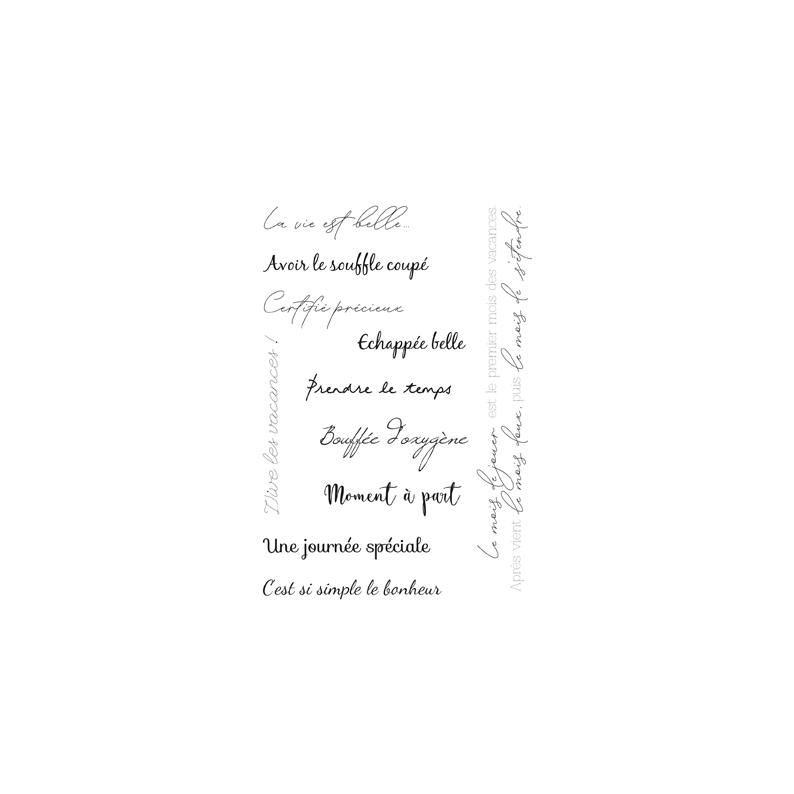 La vie est belle...
Avoir le souffle coupé
Certifié précieux
Echappée belle
Prendre le temps
Bouffée d'oxygène
Moment à part
Une journée spéciale
C'est si simple le bonheur
Vive les vacances !
Le mois de jouer est le premier mois des vacances.
Après vient le mois doux, puis le mois de s'étendre.